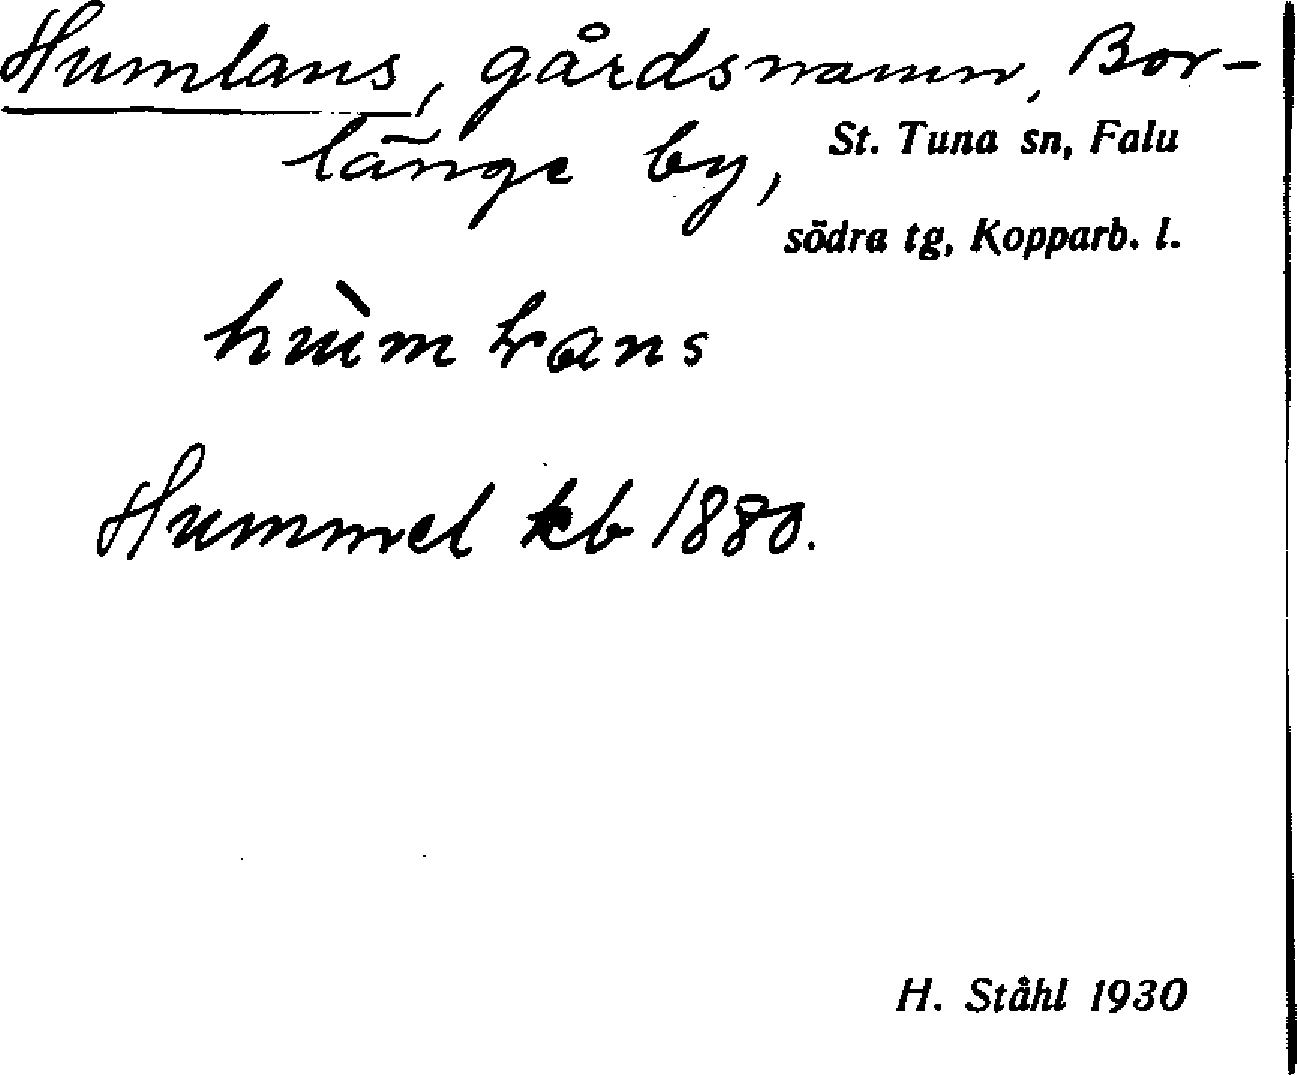 Humlans, gårdsnamn, Bor-
länge by, St. Tuna sn, Falu
södra tg, Kopparb. l.
Hummel kb 1880.
H. Ståhl 1930